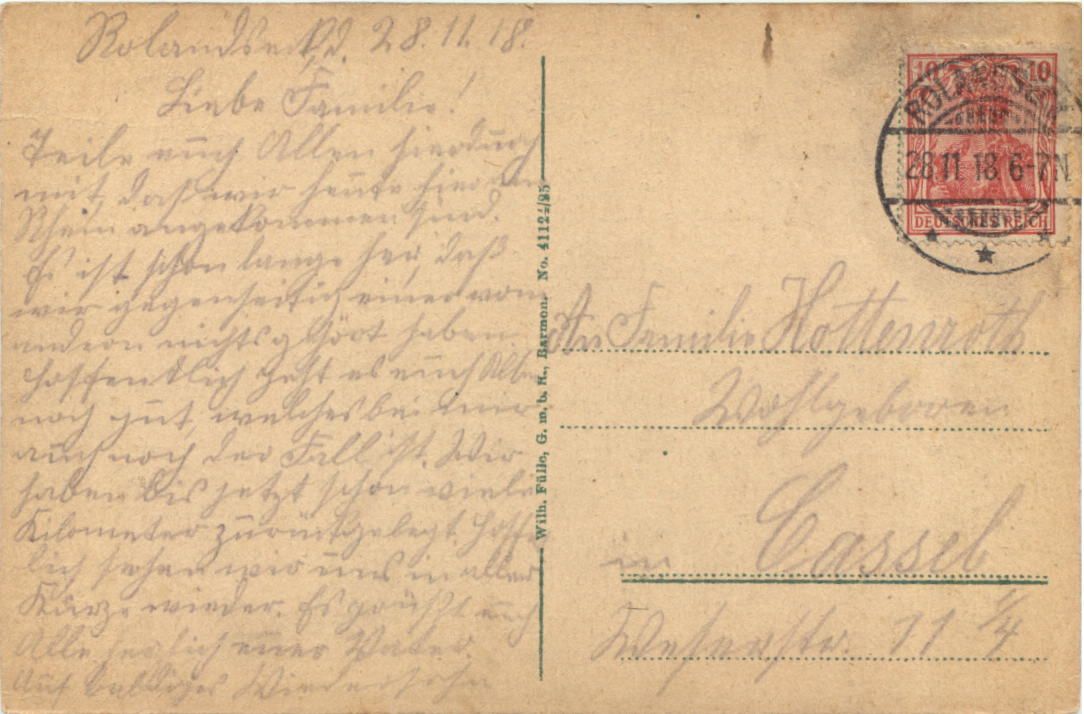 Rolandseck, d. 28.11.18.
Liebe Familie!
Teile euch Allen hierdurch
mit, daß wir heute hier am
Rhein angekommen sind.
Es ist schon lange her, daß
wir gegenseitig einer vom
andern nichts gehört haben.
Hoffentlich geht es euch Allen
noch gut, welches bei mir
auch noch der Fall ist. Wir
haben bis jetzt schon viele
Kilometer zurückgelegt. Hoffent
lich sehen wir uns in aller
Kürze wieder. Es grüßt euch
Alle herzlich euer Vater
Auf baldiges Wiedersehn
Wilh. Fülle, G. m. b. H., Barmen. No. 41124/25
10 10
DEUTSCHES REICH
28.11.18.6-7N
An Familie Hottenroth
Wohlgeboren
in Cassel
Weserstr. 11 1/4